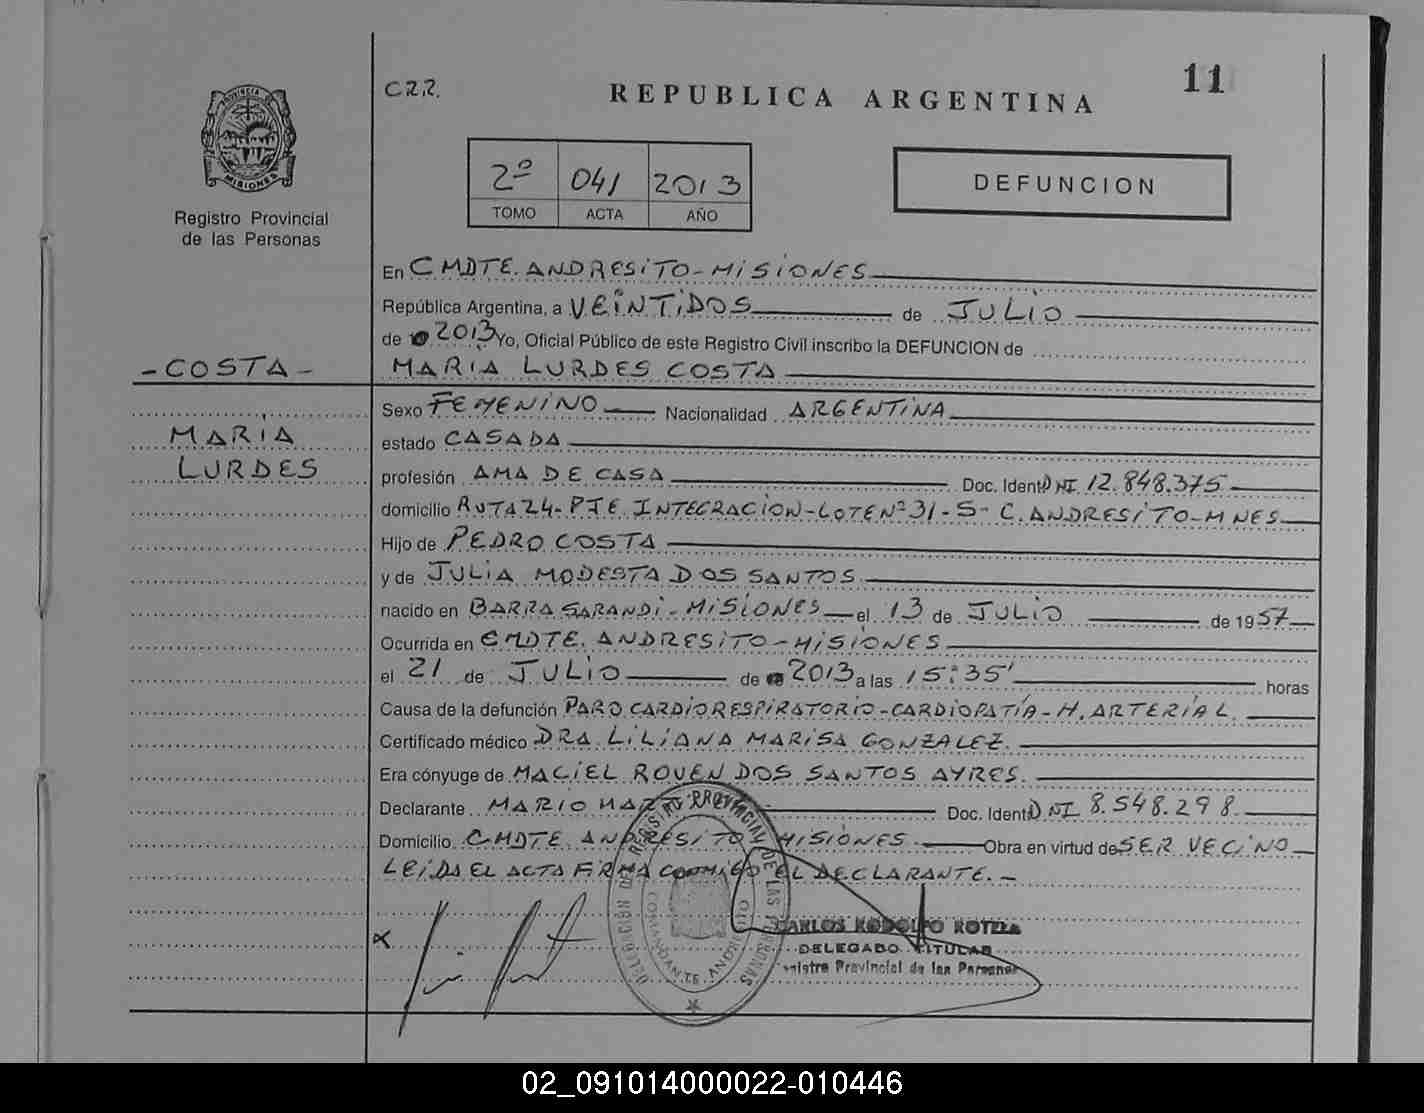 11
C22.
REPUBLICA ARGENTINA
PROVINCIA DE
MISIONES
Registro Provincial
de las Personas
2º 041 2013
TOMO ACTA AÑO
DEFUNCION
En CMDTE. ANDRESITO-MISIONES
República Argentina, a VEINTIDOS de JULIO
de 2013 Yo, Oficial Público de este Registro Civil inscribo la DEFUNCION de
-COSTA-
MARIA LURDES COSTA
Sexo FEMENINO Nacionalidad ARGENTINA
MARIA
estado CASADA
LURDES
profesión AMA DE CASA Doc. Ident. DNI 12.848.375
domicilio RUTA 24-PJE INTEGRACION-LOTE Nº 31-S- C. ANDRESITO-MNES
Hijo de PEDRO COSTA
y de JULIA MODESTA DOS SANTOS
nacido en BARRA SARANDI-MISIONES el 13 de JULIO de 1957
Ocurrida en CMDTE. ANDRESITO-MISIONES
el 21 de JULIO de 2013 a las 15:35' horas
Causa de la defunción PARO CARDIORESPIRATORIO-CARDIOPATÍA-H. ARTERIAL.
Certificado médico DRA. LILIANA MARISA GONZALEZ.
Era cónyuge de MACIEL ROVEN DOS SANTOS AYRES.
Declarante MARIO Doc. Ident. DNI 8.548.298
Domicilio CMDTE. ANDRESITO MISIONES Obra en virtud de SER VECINO
LEIDA EL ACTA FIRMA CONMIGO EL DECLARANTE.-
DELEGACION DEL REGISTRO PROVINCIAL DE LAS PERSONAS
COMANDANTE ANDRESITO
X
CARLOS RODOLFO ROTELA
DELEGADO TITULAR
Registro Provincial de las Personas
02_091014000022-010446